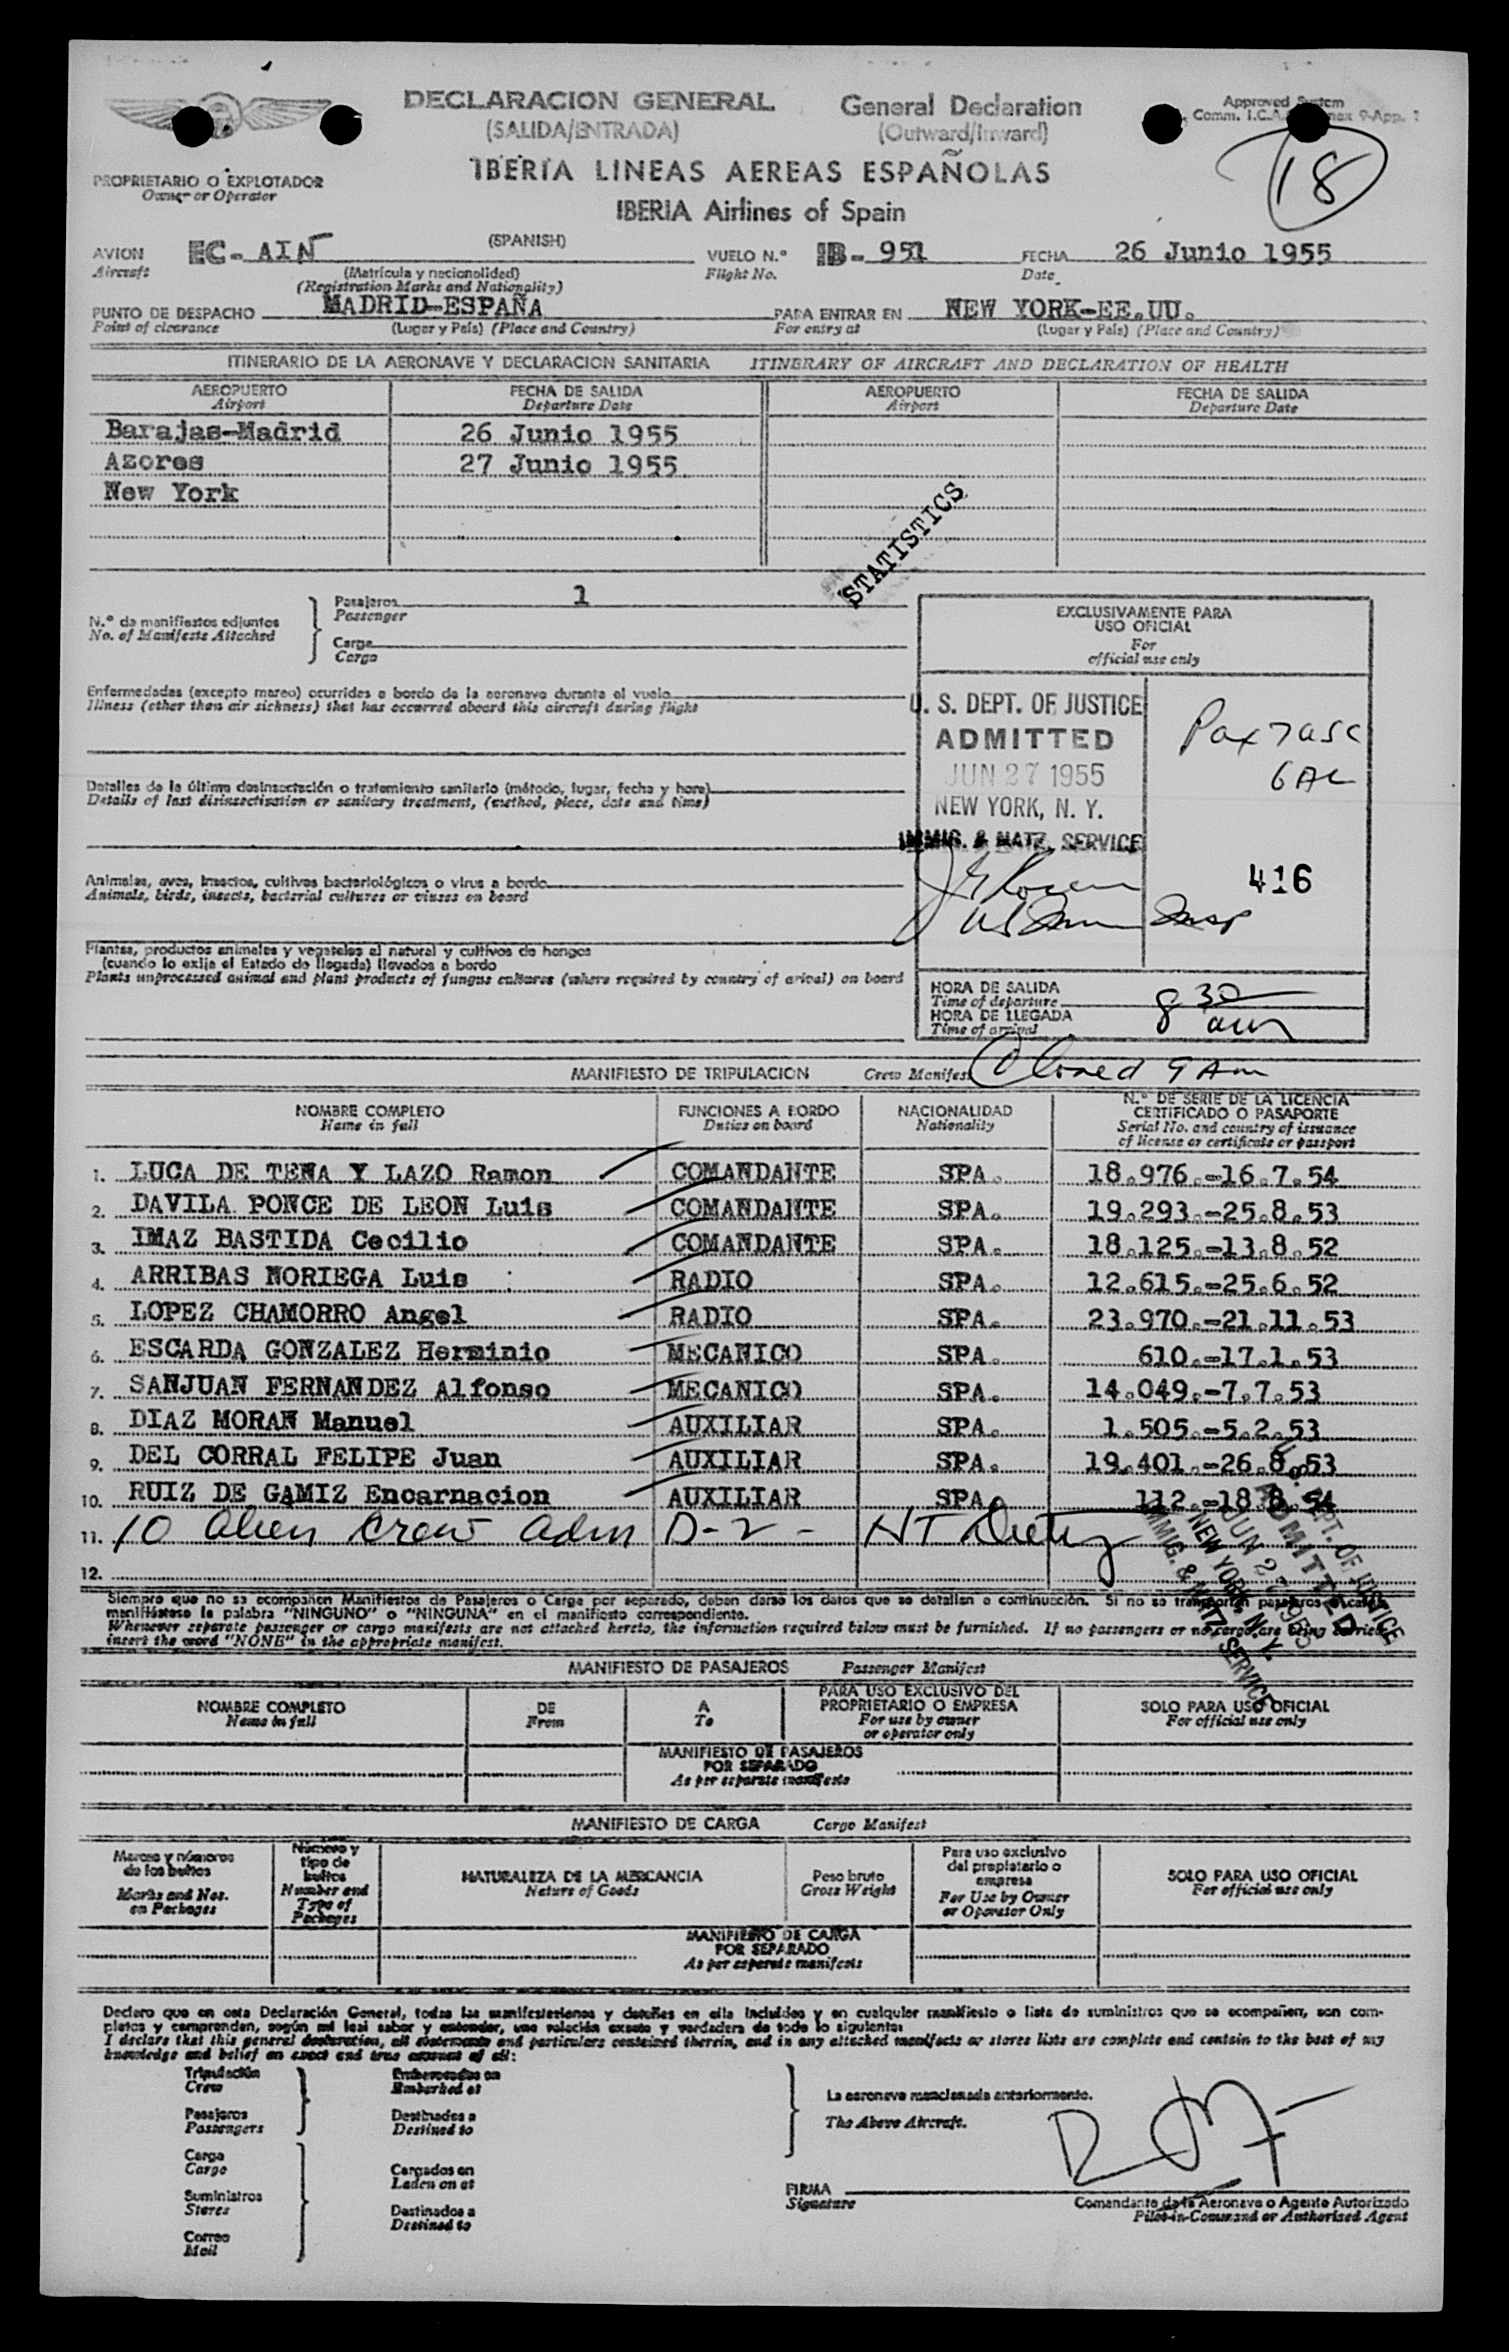 DECLARACION GENERAL General Declaration
(SALIDA/ENTRADA) (Outward/Inward)
Approved System
Comm. I.C.A. 9-App. 1
IBERIA LINEAS AEREAS ESPAÑOLAS
IBERIA Airlines of Spain
18
PROPRIETARIO O EXPLOTADOR
Owner or Operator
AVION EC-AIN (SPANISH) VUELO N.º IB-951 FECHA 26 Junio 1955
Aircraft (Matrícula y nacionalidad) Flight No. Date
(Registration Marks and Nationality)
PUNTO DE DESPACHO MADRID-ESPAÑA PARA ENTRAR EN NEW YORK-EE.UU.
Point of clearance (Lugar y País) (Place and Country) For entry at (Lugar y País) (Place and Country)
ITINERARIO DE LA AERONAVE Y DECLARACION SANITARIA ITINERARY OF AIRCRAFT AND DECLARATION OF HEALTH
AEROPUERTO FECHA DE SALIDA AEROPUERTO FECHA DE SALIDA
Airport Departure Date Airport Departure Date
Barajas-Madrid 26 Junio 1955
Azores 27 Junio 1955
New York
STATISTICS
N.º de manifiestos adjuntos
No. of Manifests Attached
Pasajeros 1
Passenger
Carga
Cargo
EXCLUSIVAMENTE PARA
USO OFICIAL
For
official use only
Enfermedades (excepto mareo) ocurridas a bordo de la aeronave durante el vuelo
Illness (other than air sickness) that has occurred aboard this aircraft during flight
U. S. DEPT. OF JUSTICE
ADMITTED
JUN 27 1955
NEW YORK, N. Y.
IMMIG. & NATZ. SERVICE
416
Detalles de la última desinsectación o tratamiento sanitario (método, lugar, fecha y hora)
Details of last disinsectisation or sanitary treatment, (method, place, date and time)
Animales, aves, insectos, cultivos bacteriológicos o virus a bordo
Animals, birds, insects, bacterial cultures or viuses on board
Plantas, productos animales y vegetales al natural y cultivos de hongos
(cuando lo exija el Estado de llegada) llevados a bordo
Plants unprocessed animal and plant products of fungus cultures (where required by country of arival) on board
HORA DE SALIDA
Time of departure
HORA DE LLEGADA
Time of arrival
8 30 am
Closed 9 Am
MANIFIESTO DE TRIPULACION Crew Manifest
NOMBRE COMPLETO FUNCIONES A BORDO NACIONALIDAD N.º DE SERIE DE LA LICENCIA
Name in full Duties on board Nationality CERTIFICADO O PASAPORTE
Serial No. and country of issuance
of license or certificate or passport
1. LUCA DE TENA Y LAZO Ramon COMANDANTE SPA. 18.976.-16.7.54
2. DAVILA PONCE DE LEON Luis COMANDANTE SPA. 19.293.-25.8.53
3. IMAZ BASTIDA Cecilio COMANDANTE SPA. 18.125.-13.8.52
4. ARRIBAS NORIEGA Luis RADIO SPA. 12.615.-25.6.52
5. LOPEZ CHAMORRO Angel RADIO SPA. 23.970.-21.11.53
6. ESCARDA GONZALEZ Herminio MECANICO SPA. 610.-17.1.53
7. SANJUAN FERNANDEZ Alfonso MECANICO SPA. 14.049.-7.7.53
8. DIAZ MORAN Manuel AUXILIAR SPA. 1.505.-5.2.53
9. DEL CORRAL FELIPE Juan AUXILIAR SPA. 19.401.-26.8.53
10. RUIZ DE GAMIZ Encarnacion AUXILIAR SPA. 112.-18.8.54
11. 10 alien crew adm D-2 -
12.
U. S. DEPT. OF JUSTICE
ADMITTED
JUN 27 1955
NEW YORK, N. Y.
IMMIG. & NATZ. SERVICE
Siempre que no se acompañen Manifiestos de Pasajeros o Carga por separado, deben darse los datos que se detallan a continuación. Si no se transportan pasajeros o carga,
manifiéstese la palabra "NINGUNO" o "NINGUNA" en el manifiesto correspondiente.
Whenever separate passenger or cargo manifests are not attached hereto, the information required below must be furnished. If no passengers or no cargo are being carried
insert the word "NONE" in the appropriate manifest.
MANIFIESTO DE PASAJEROS Passenger Manifest
NOMBRE COMPLETO DE A PARA USO EXCLUSIVO DEL SOLO PARA USO OFICIAL
Name in full From To PROPRIETARIO O EMPRESA For official use only
For use by owner
or operator only
MANIFIESTO DE PASAJEROS
POR SEPARADO
As per separate manifests
MANIFIESTO DE CARGA Cargo Manifest
Marcas y números
de los bultos
Marks and Nos.
on Packages
Número y
tipo de
bultos
Number and
Type of
Packages
NATURALEZA DE LA MERCANCIA
Nature of Goods
Peso bruto
Gross Weight
Para uso exclusivo
del propietario o
empresa
For Use by Owner
or Operator Only
SOLO PARA USO OFICIAL
For official use only
MANIFIESTO DE CARGA
POR SEPARADO
As per separate manifests
Declaro que en esta Declaración General, todas las manifestaciones y detalles en ella incluídos y en cualquier manifiesto o lista de suministros que se acompañen, son com-
pletos y comprenden, según mi leal saber y entender, una relación exacta y verdadera de todo lo siguiente:
I declare that this general declaration, all statements and particulars contained therein, and in any attached manifests or stores lists are complete and contain to the best of my
knowledge and belief an exact and true account of all:
Tripulación
Crew
Pasajeros
Passengers
Carga
Cargo
Suministros
Stores
Correo
Mail
Embarcados en
Embarked at
Destinados a
Destined to
Cargados en
Laden on at
Destinados a
Destined to
La aeronave mencionada anteriormente.
The Above Aircraft.
FIRMA
Signature
Comandante de la Aeronave o Agente Autorizado
Pilot-in-Command or Authorised Agent